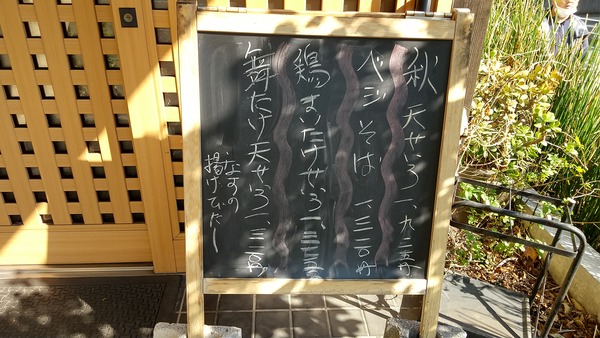 秋天せいろ 一、九二〇円
ベジそば 一、三二〇円
鶏まいたけせいろ 一、三二〇円
舞たけ天せいろ 一、三二〇円
なすの
揚げびたし